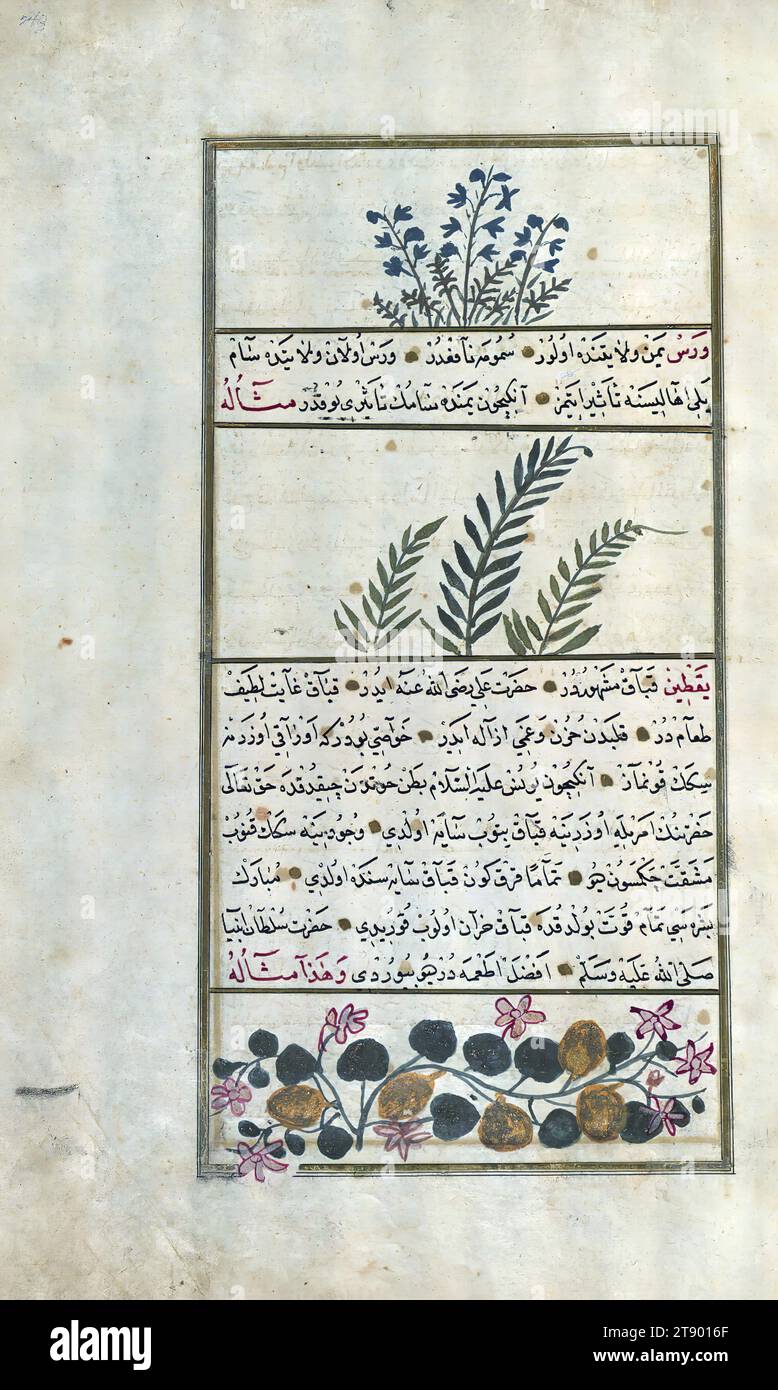 ورس يمن ولايتنده اولور سمومه نافعدر ورس اولان ولايتده سام
يلى اهاليسنه تأثير ايتمز آنكيچون يمنده سامك تأثيرى يوقدر مثاله
يقطين قباق مشهوردر حضرت على رضى الله عنه ايدر قباق غايت لطيف
طعام در قلبدن حزن وغمى ازاله ايدر خواصى بودركه اوراقى اوزرنه
سكك قونماز آنكيچون يونس عليه السلام بطن حوتدن چيقدقده حق تعالى
حضرتنك امريله اوزرينه قباق بيتوب سايه اولدى وجودينه سكك قنوب
مشقت چكمسون ديو تماما قرق كون قباق سايه سنده اولدى مبارك
بشره سى تمام قوت بولدقده قباق خزان اولوب قوريدى حضرت سلطان انبيا
صلى الله عليه وسلم افضل اطعمه در ديو بيوردى وهذا مثاله
alamy
Image ID: 2T9016F
www.alamy.com